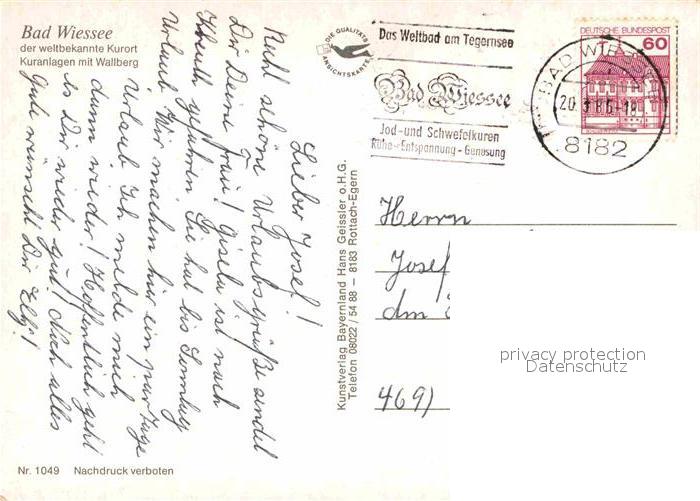 Bad Wiessee
der weltbekannte Kurort
Kuranlagen mit Wallberg
Lieber Josef!
Recht schöne Urlaubsgrüße sendet
Dir Deine Frau! Gisela ist nach
Kreuth gefahren Sie hat bis Sonntag
Urlaub Wir machen hier ein paar Tage
Urlaub Ich melde mich
dann wieder! Hoffentlich geht
es Dir wieder gut! Noch alles
Gute wünscht Dir Elfi!
Nr. 1049 Nachdruck verboten
Kunstverlag Bayernland Hans Geissler o.H.G.
Telefon 08022 / 54 88 – 8183 Rottach-Egern
DIE QUALITÄTS
ANSICHTSKARTE
Das Weltbad am Tegernsee
Bad Wiessee
Jod-und Schwefelkuren
Ruhe-Entspannung-Genesung
DEUTSCHE BUNDESPOST
60
BAD WIESSEE
8182
Herrn
Josef
Am
469
privacy protection
Datenschutz